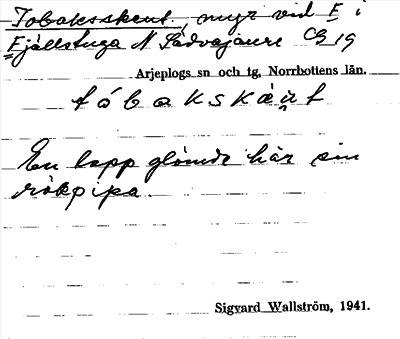 Tobaksskent, myr vid E i
Fjällstuga N Sädvajaure CB 19
Arjeplogs sn och tg, Norrbottens län.
En lapp glömde här sin
rökpipa.
Sigvard Wallström, 1941.